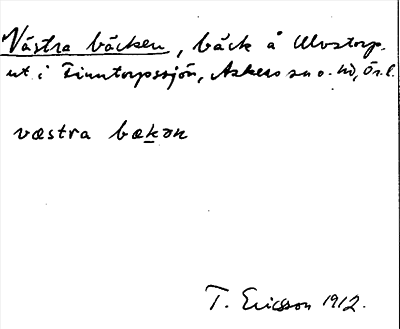 Västra bäcken, bäck å Ulvstorp.
ut i Finntorpssjön, Askers sn o. hd, Ör. l.
væstra bækən
T. Ericsson 1912.